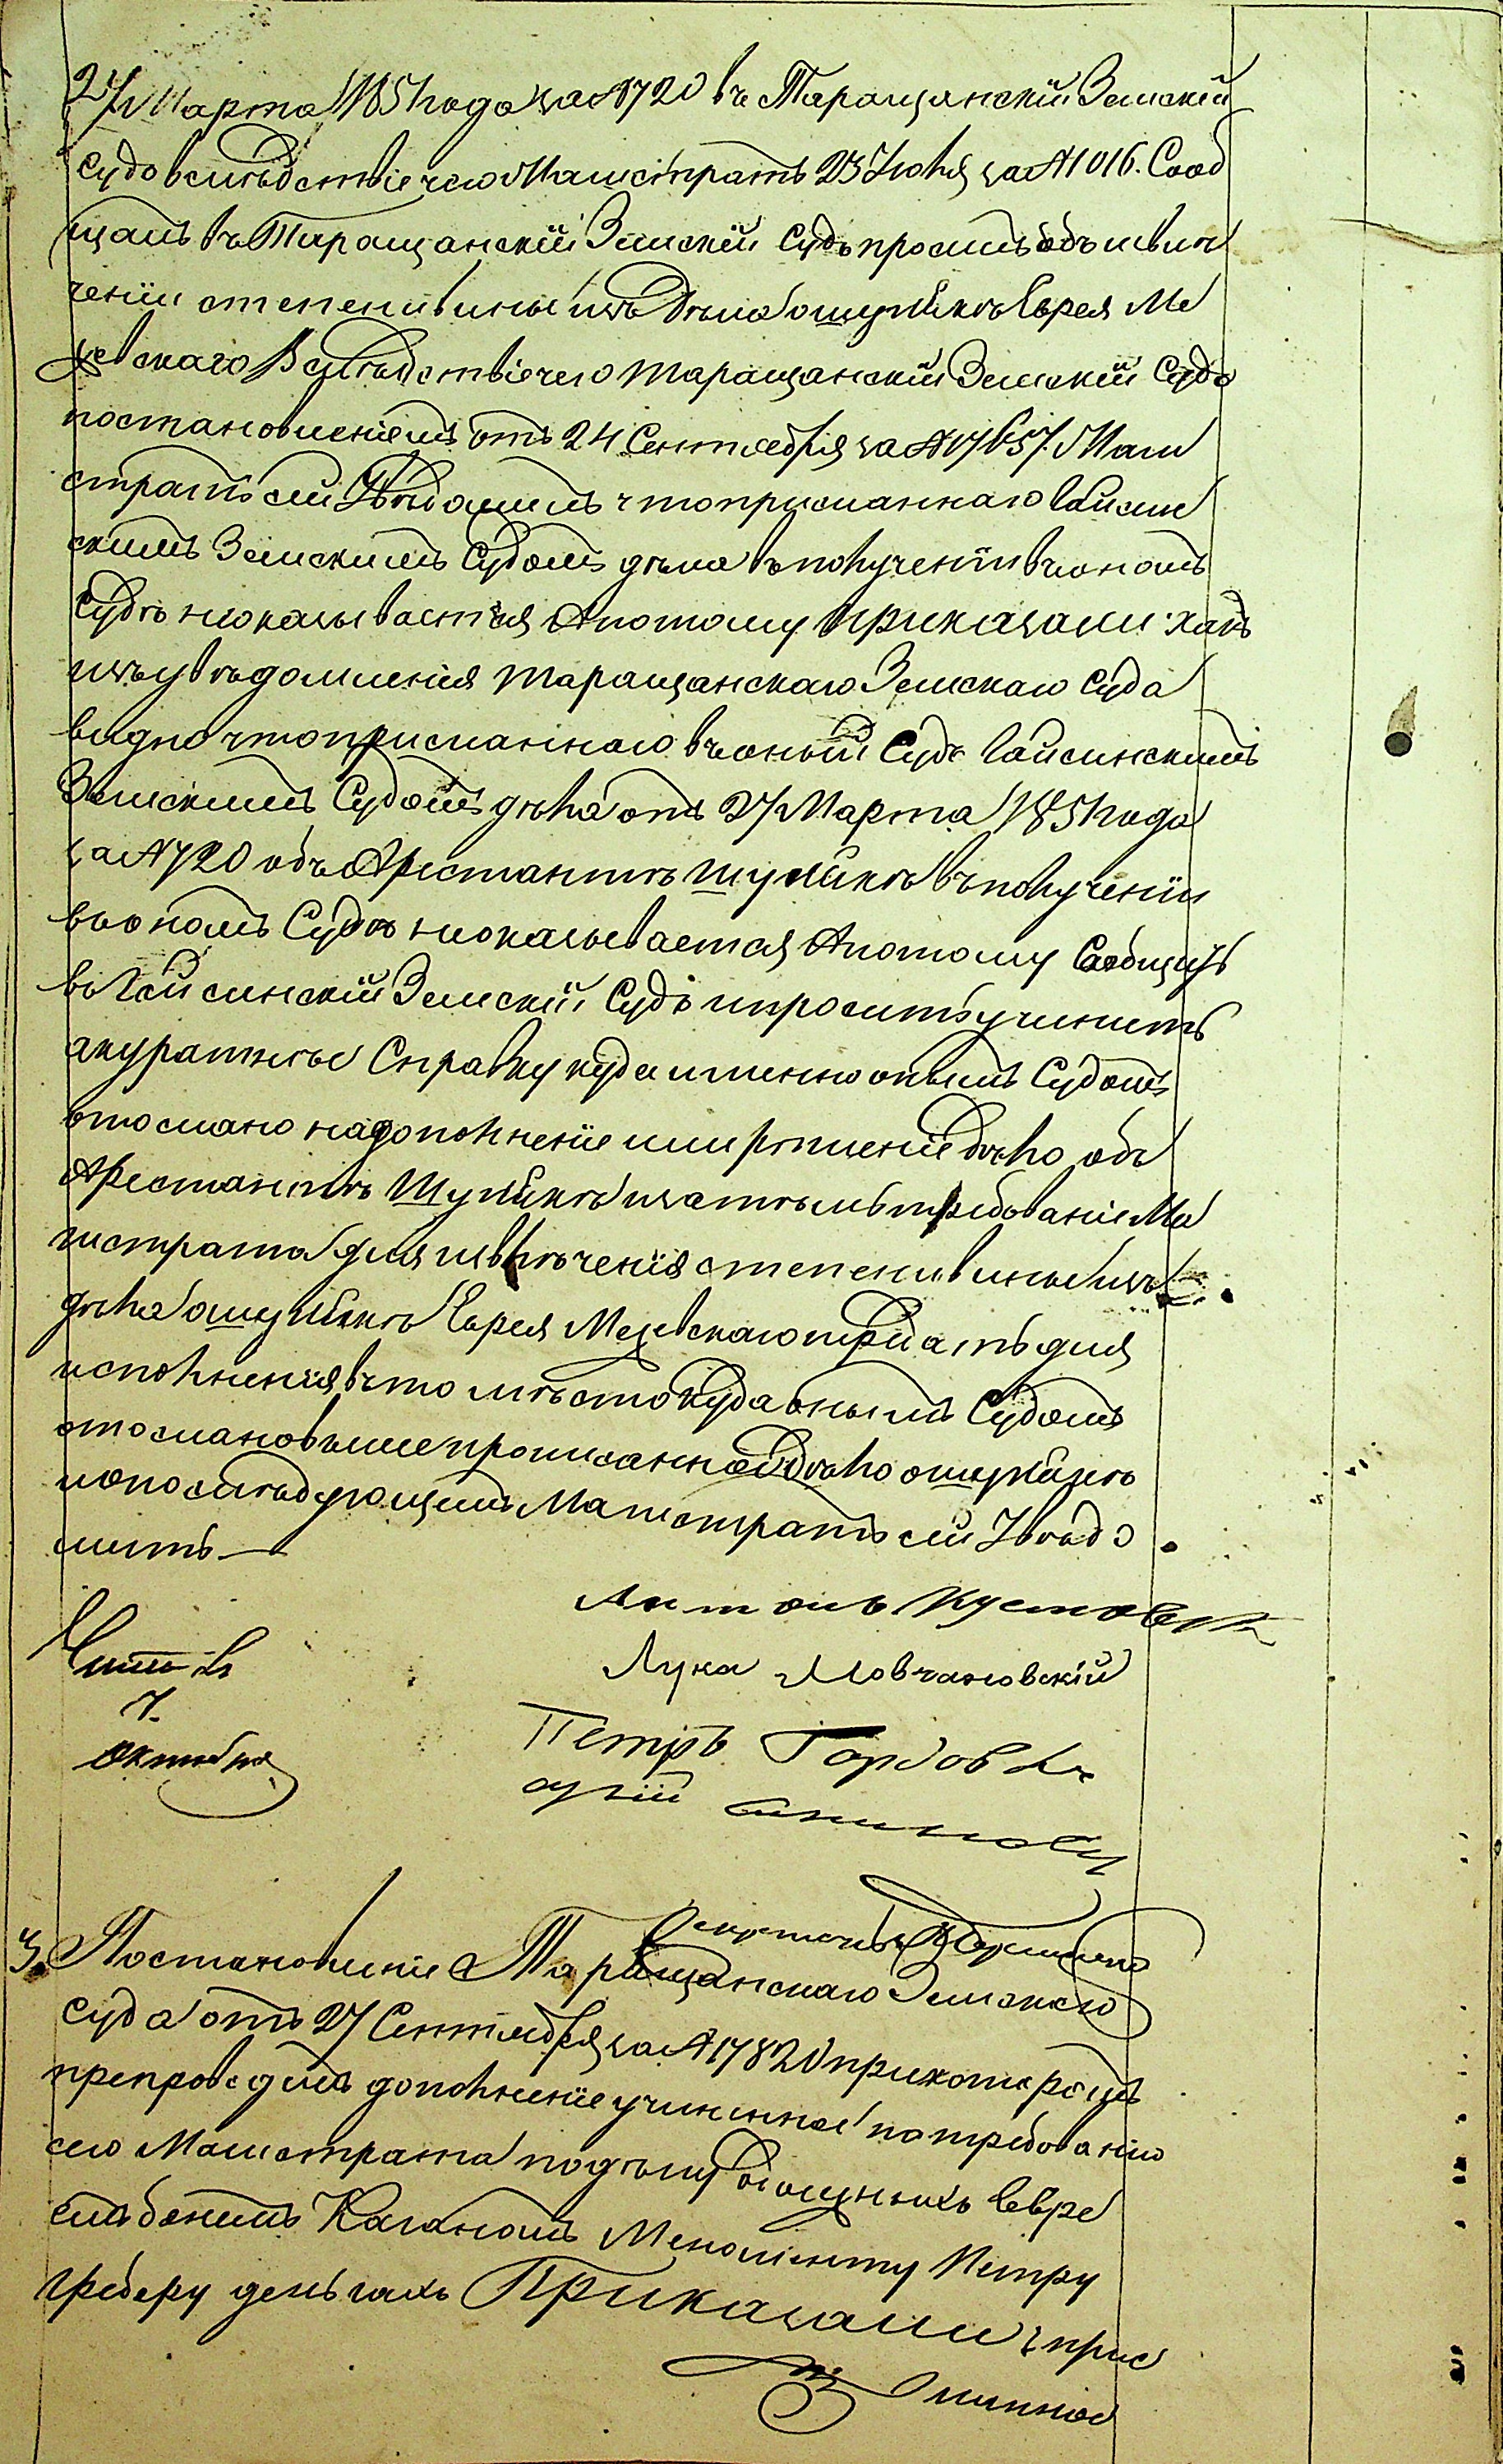 27 Марта 1851 года за №720 въ Таращанскій Земскій
Судъ вслѣдствіе чего Магистратъ 23 Іюня за №1016. Сооб
щалъ въ Таращанскій Земскій Судъ просилъ объ извле
ченіи степени вины изъ дѣла о шулйкѣ Еврея Ме
жевскаго Вслѣдствіе чего Таращанскій Земскій Судъ
постановленіемъ отъ 24 Сентября за №17657. Маги
стратъ сей Увѣдомилъ что присланнаго Гайсин
скимъ Земскимъ Судомъ дѣла въ полученіи въ ономъ
Судѣ неоказывается А потому Приказали: какъ
изъ увѣдомленія Таращанскаго Земскаго Суда
видно что присланнаго въ оный Судъ Гайсинскимъ
Земскимъ Судомъ дѣла отъ 27 Марта 1851 года
за №720 объ Арестантѣ шулйкѣ въ полученіи
въ ономъ Судѣ неоказывается А потому Сообщить
въ Гайсинскій Земскій Судъ и просить учинить
акуратнѣе Справку куда именно онымъ Судомъ
отослано на дополненіе или рѣшеніе дѣло объ
Арестантѣ Шулйкѣ и затѣмъ требованіе Ма
гистрата для извлѣченія степени вины изъ
дѣла о шулйкѣ Еврея Межевскаго передать для
исполненія въ то мѣсто куда онымъ Судомъ
отослано вышепрописанное дѣло о шулйкѣ
и о послѣдующемъ Магистратъ сей Увѣдо
мить
Антонъ
Читалъ
Лука Мовчановскій
7.
Октября
Петръ
Секретарь
3. Постановленіе Таращанскаго Земскаго
Суда отъ 27 Сентября за №17820 при которомъ
препроводилъ дополненіе учиненное по требованію
сего Магистрата по дѣлу о взысканныхъ Евре
емъ Каганомъ Менонисту Петру
Греберу деньгахъ Приказали: при